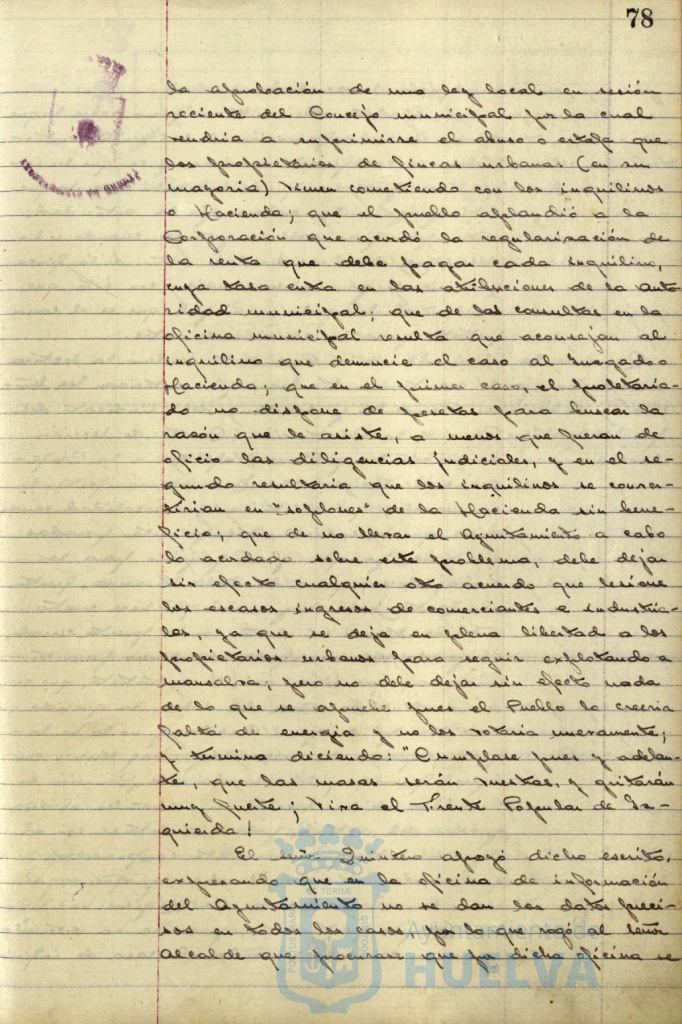 78
la aprobación de una ley local en sesión
reciente del Concejo municipal por la cual
vendria a suprimirse el abuso o estafa que
los propietarios de fincas urbanas (en su
mayoria) vienen cometiendo con los inquilinos
o Hacienda; que el pueblo aplaudió a la
Corporación que acordó la regularización de
la renta que debe pagar cada inquilino,
cuya tasa entra en las atribuciones de la auto
ridad municipal; que de las consultas en la
oficina municipal resulta que aconsejan al
inquilino que denuncie el caso al Juzgado o
Hacienda; que en el primer caso, el proletaria-
do no dispone de pesetas para buscar la
razón que le asiste, a menos que fueran de
oficio las diligencias judiciales, y en el se-
gundo resultaria que los inquilinos se conver-
tirian en "soplones" de la Hacienda sin bene-
ficio; que de no llevar el Ayuntamiento a cabo
lo acordado sobre este problema, debe dejar
sin efecto cualquier otro acuerdo que lesione
los escasos ingresos de comerciantes e industria-
les, ya que se deja en plena libertad a los
propietarios urbanos para seguir explotando a
mansalva; pero no debe dejar sin efecto nada
de lo que se apruebe pues el Pueblo lo creeria
falta de energia y no los votaria nuevamente;
y termina diciendo: "Cumplase pues y adelan-
te, que las masas serán vuestras, y gritarán
muy fuerte; Viva el Frente Popular de Iz-
quierda!
El señor Quintero apoyó dicho escrito,
expresando que en la oficina de información
del Ayuntamiento no se dan los datos preci-
sos en todos los casos, por lo que rogó al señor
Alcalde que procurase que por dicha oficina se
Ayuntamiento de
HUELVA